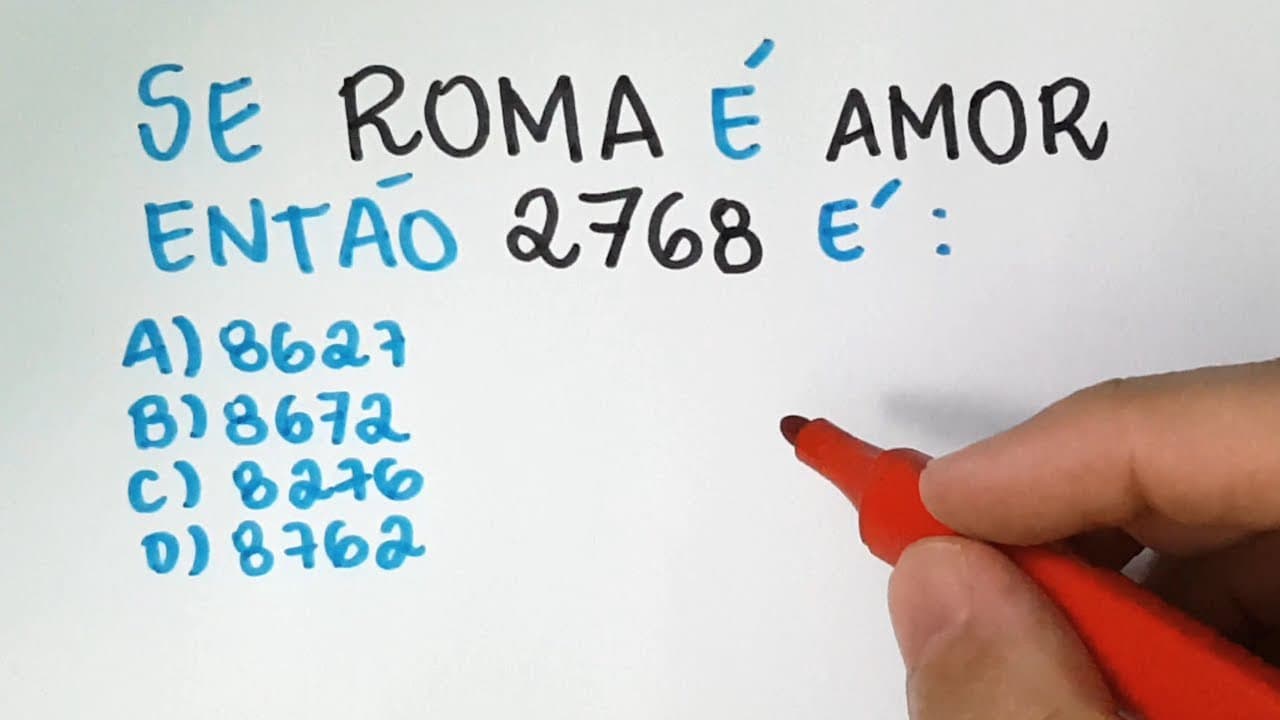 SE ROMA É AMOR
ENTÃO 2768 É:
A) 8627
B) 8672
C) 8276
D) 8762